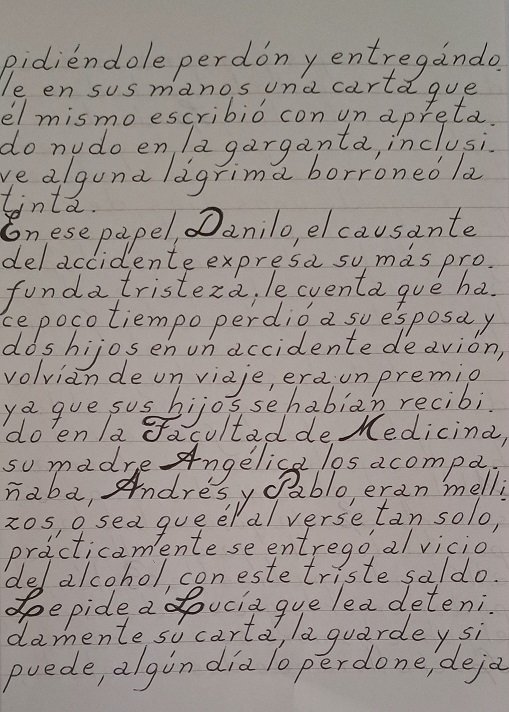 pidiéndole perdón y entregándo.
le en sus manos una carta que
él mismo escribió con un apreta.
do nudo en la garganta, inclusi.
ve alguna lágrima borroneó la
tinta.
En ese papel, Danilo, el causante
del accidente expresa su más pro.
funda tristeza, le cuenta que ha.
ce poco tiempo perdió a su esposa y
dos hijos en un accidente de avión,
volvían de un viaje, era un premio
ya que sus hijos se habían recibi.
do en la Facultad de Medicina,
su madre Angélica los acompa.
ñaba, Andrés y Pablo, eran melli.
zos, o sea que él al verse tan solo,
prácticamente se entregó al vicio
del alcohol, con este triste saldo.
Le pide a Lucía que lea deteni.
damente su carta, la guarde y si
puede, algún día lo perdone, deja